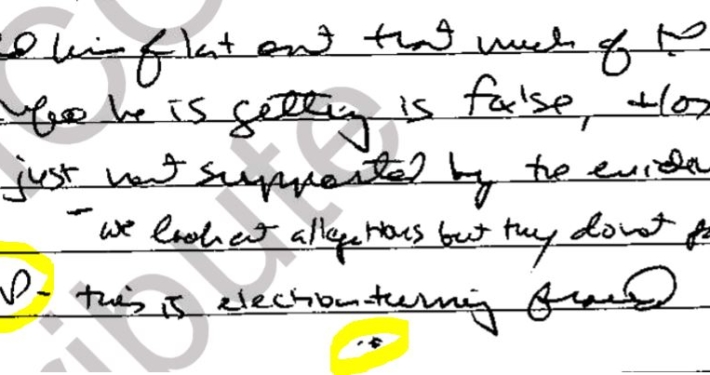 him flat out that much of
info he is getting is false, +/or
just not supported by the eviden
- we look at allegations but they do not
P - this is election turning fraud